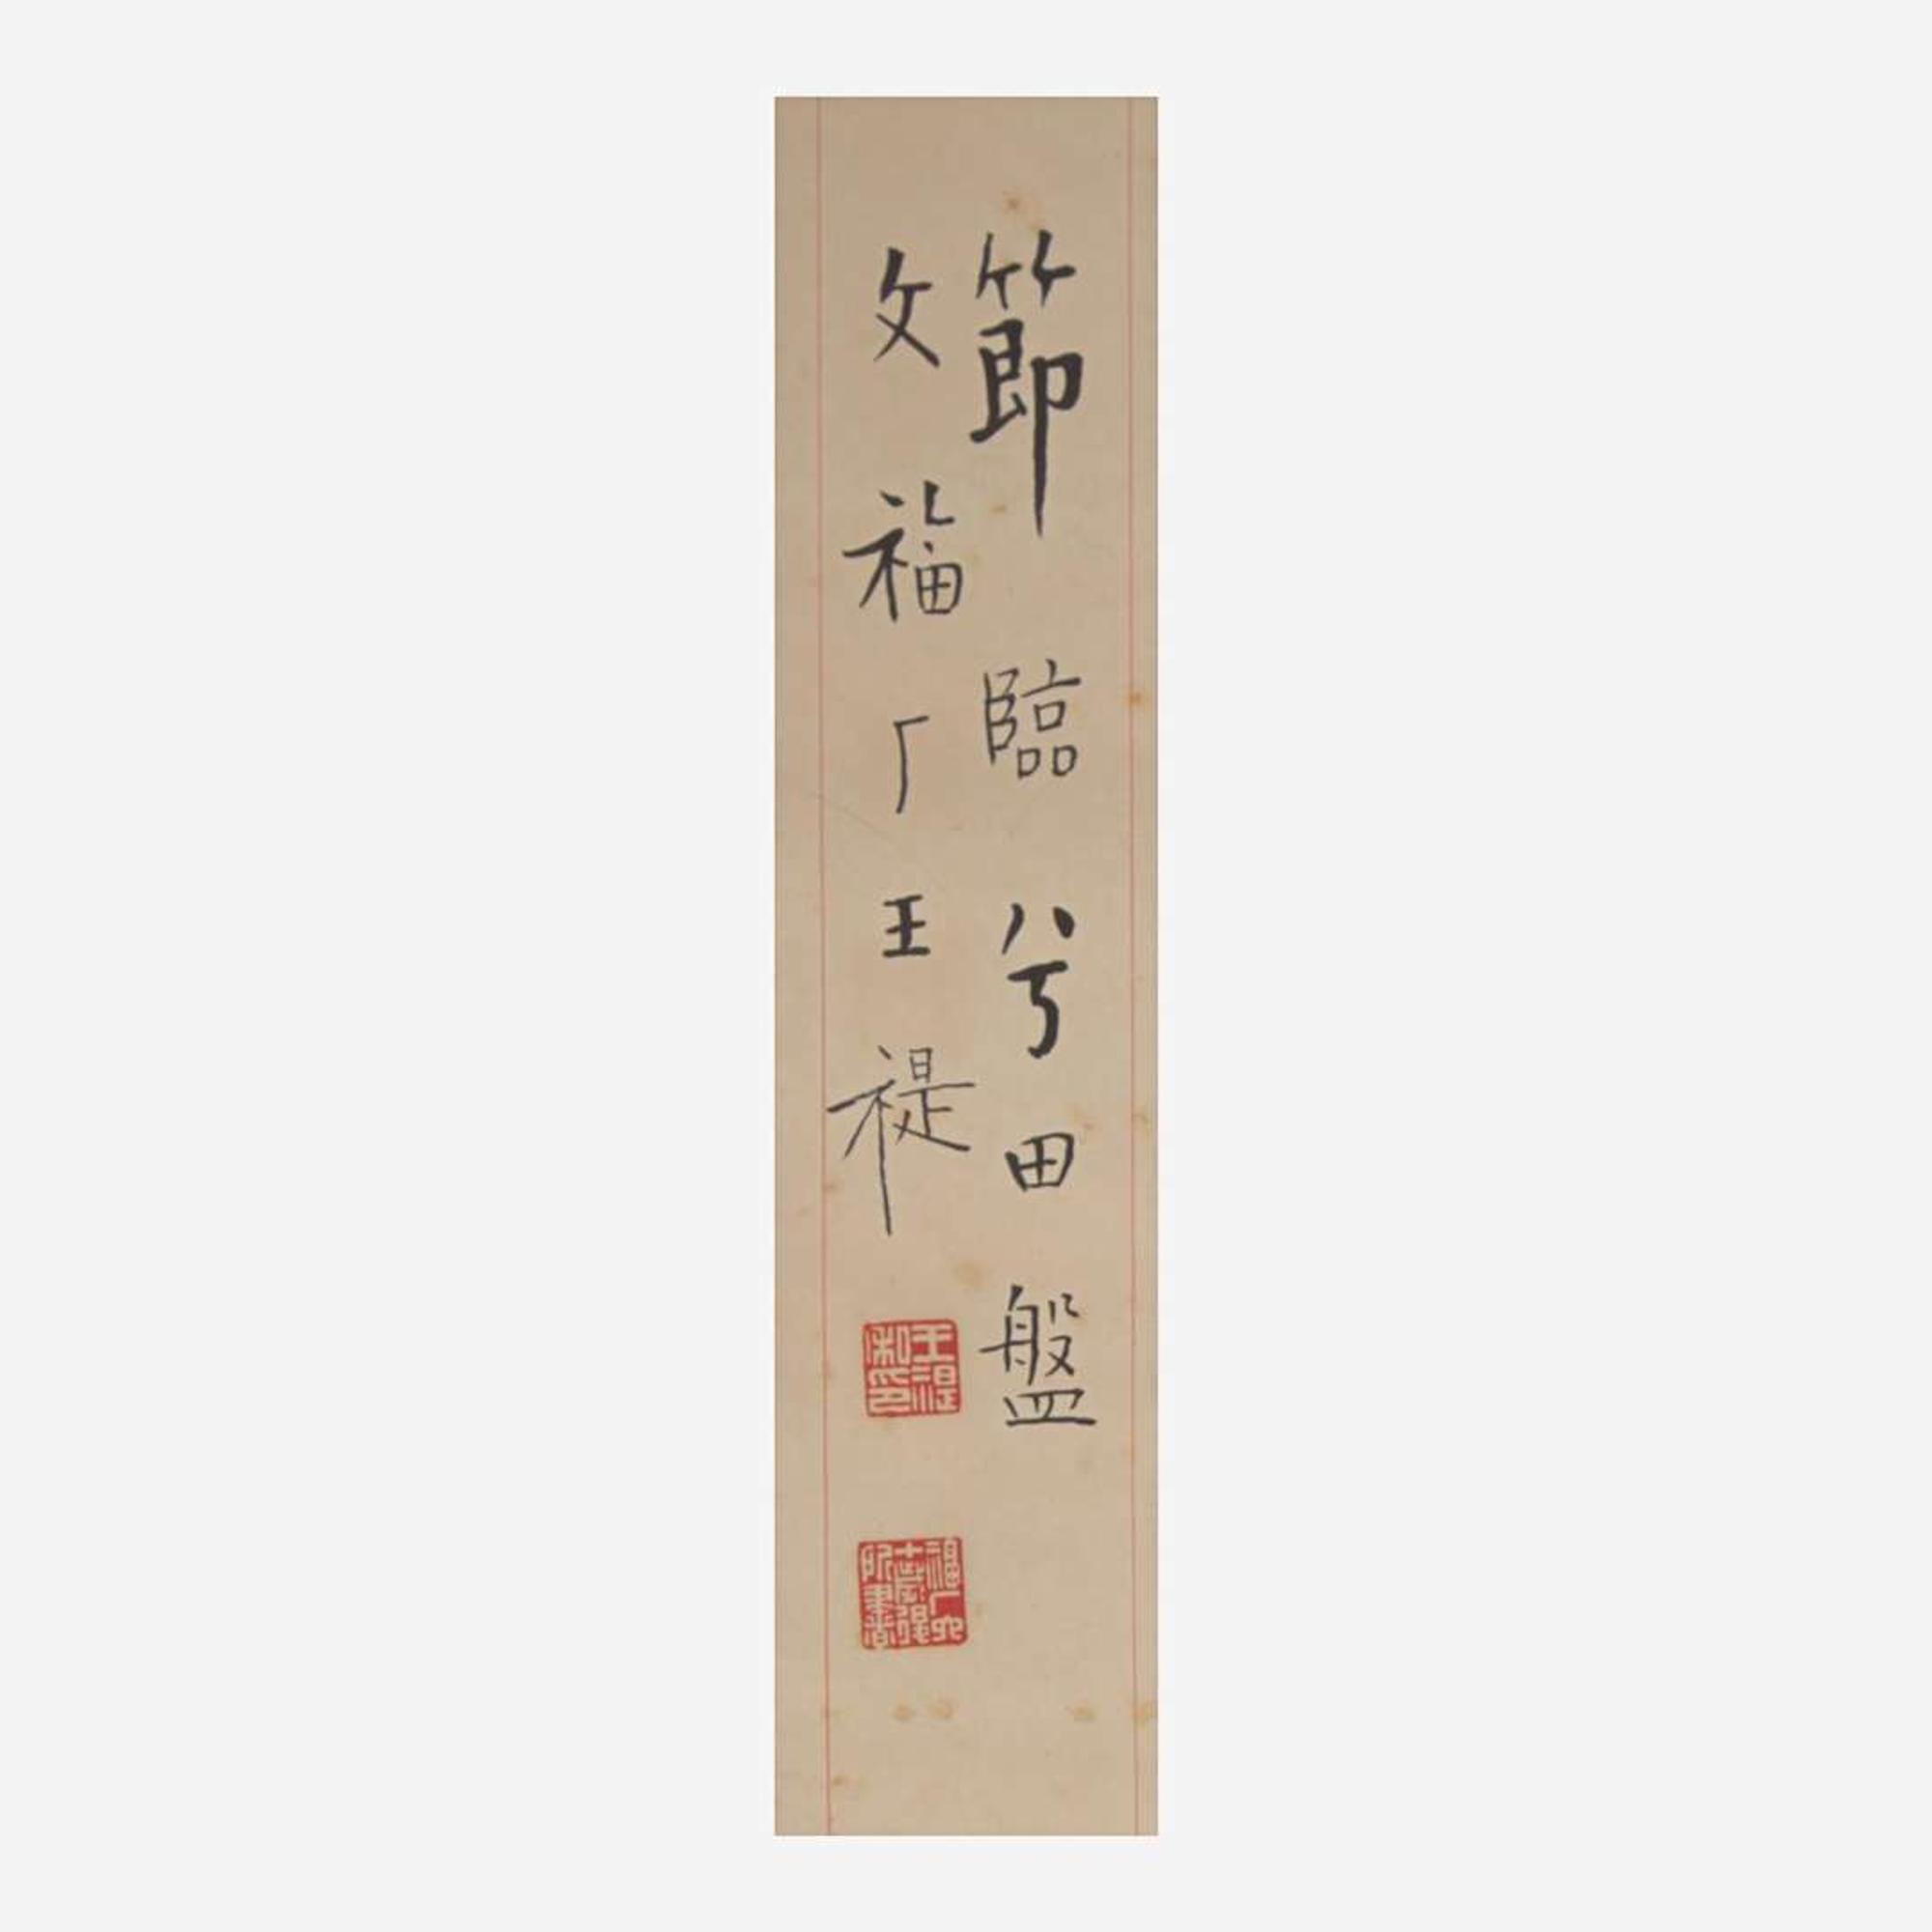 節臨兮田盤
文福厂王禔
王禔私印
福厂六十歲後所書